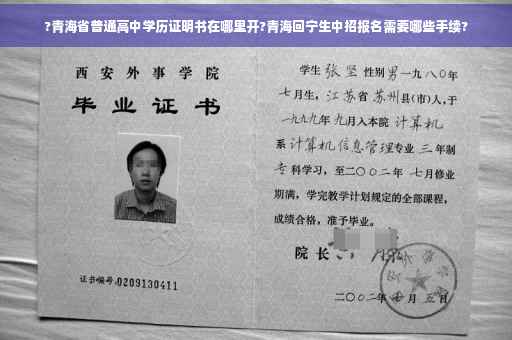 ?青海省普通高中学历证明书在哪里开?青海回宁生中招报名需要哪些手续?
西安外事学院
毕业证书
证书编号:0209130411
学生 张坚 性别 男 一九八〇年
七月生，江苏省 苏州 县(市)人，于
一九九九年 九月入本院 计算机
系 计算机信息管理 专业 三 年制
专 科学习，至二〇〇二年 七月修业
期满，学完教学计划规定的全部课程，
成绩合格，准予毕业。
院长
二〇〇二年 月 五日